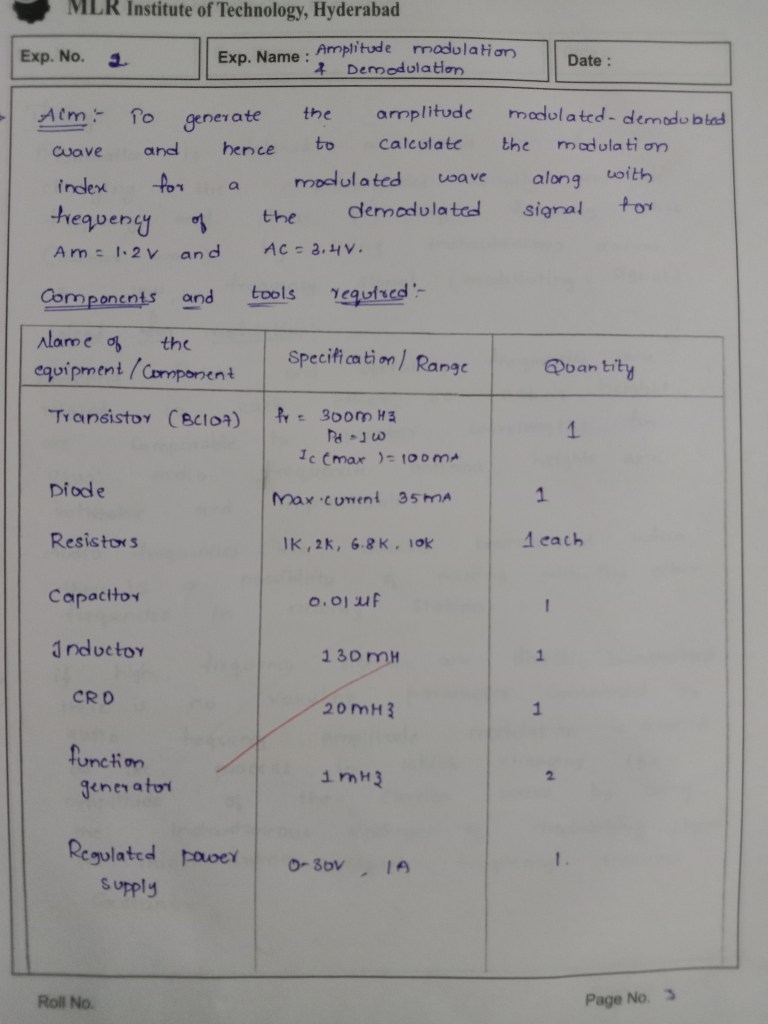 MLR Institute of Technology, Hyderabad
Exp. No. 2
Exp. Name : Amplitude modulation
& Demodulation
Date :
Aim :- To generate the amplitude modulated-demodulated
wave and hence to calculate the modulation
index for a modulated wave along with
frequency of the demodulated signal for
Am = 1.2V and AC = 3.4V.
Components and tools required :-
Name of the
equipment / Component
Specification / Range
Quantity
Transistor (BC107)
fr = 300mHz
Pd = 1W
Ic (max) = 100mA
1
Diode
Max.current 35mA
1
Resistors
1K, 2K, 6.8K, 10K
1 each
Capacitor
0.01 µf
1
Inductor
130mH
1
CRO
20mHz
1
function
generator
1mHz
2
Regulated power
supply
0-30V, 1A
1.
Roll No.
Page No. 3